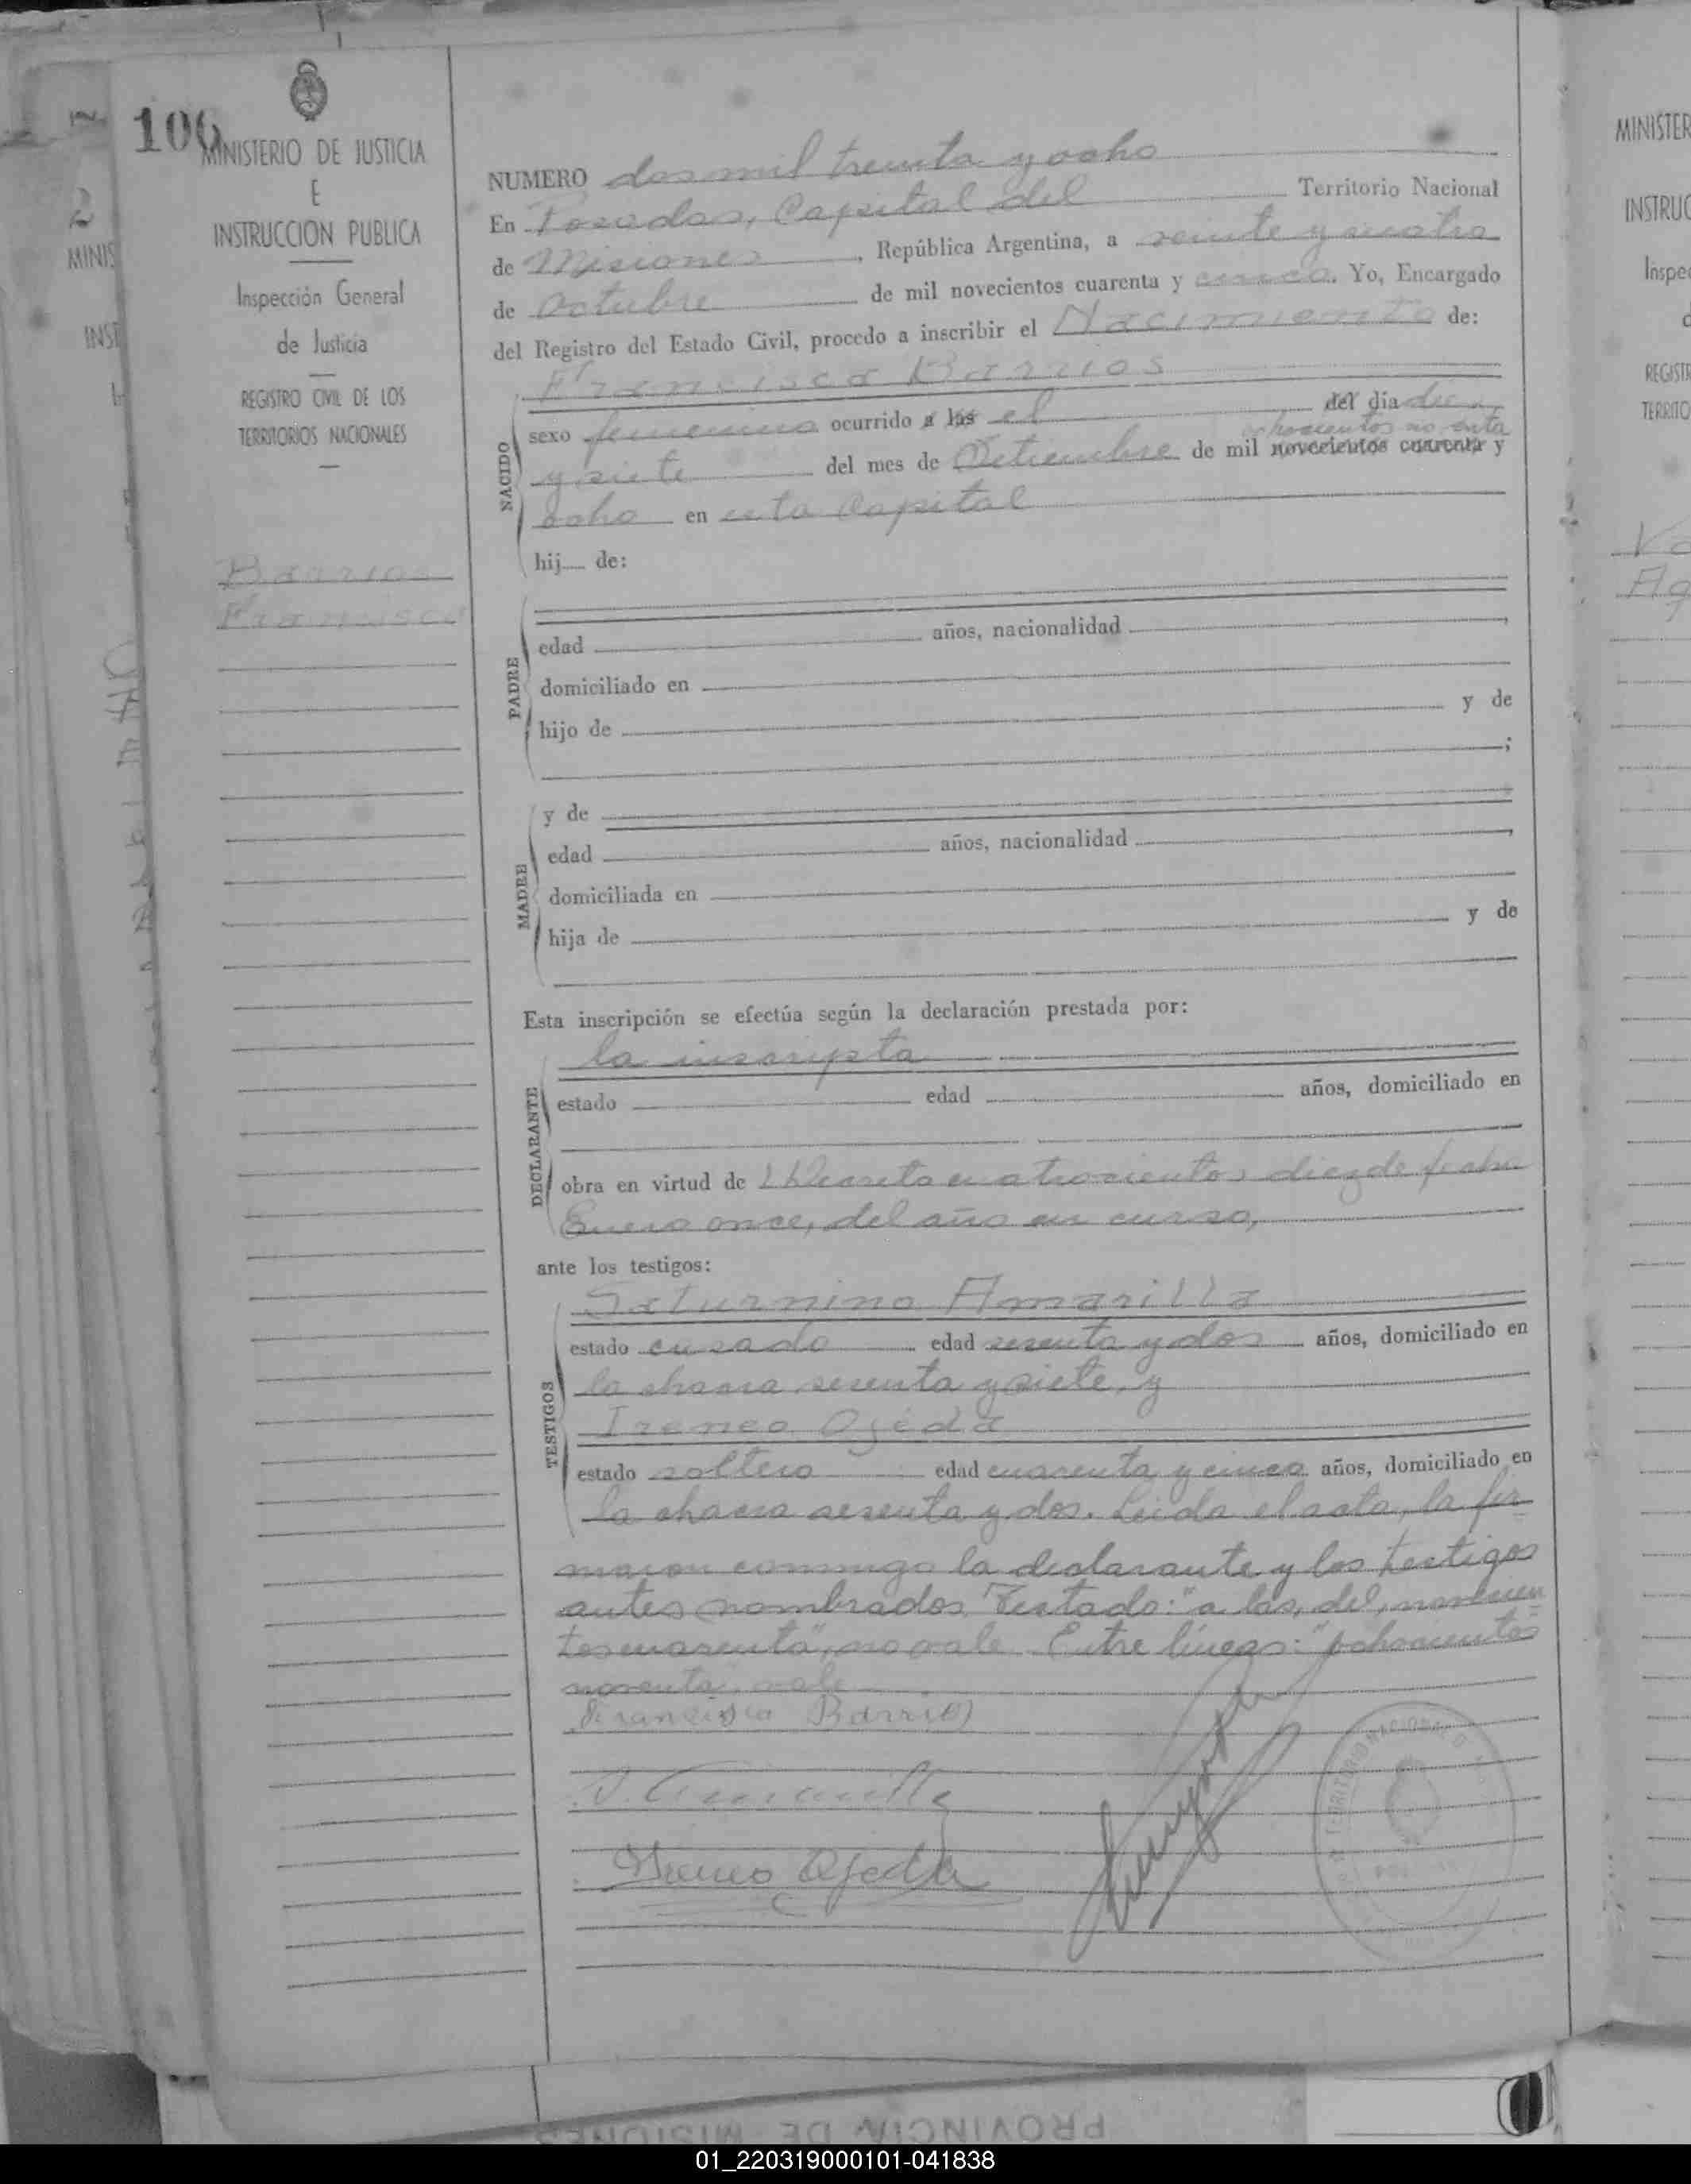 106
MINISTERIO DE JUSTICIA
E
INSTRUCCION PUBLICA
Inspección General
de Justicia
REGISTRO CIVIL DE LOS
TERRITORIOS NACIONALES
Barrios
Francisca
NUMERO dos mil treinta y ocho
En Posadas, Capital del Territorio Nacional
de Misiones, República Argentina, a veinte y cuatro
de Octubre de mil novecientos cuarenta y cinco. Yo, Encargado
del Registro del Estado Civil, procedo a inscribir el Nacimiento de:
NACIDO
Francisca Barrios
sexo femenino ocurrido a las el del día diez
ochocientos noventa
y siete del mes de Setiembre de mil novecientos cuarenta y
ocho en esta Capital
hij... de:
PADRE
edad años, nacionalidad
domiciliado en
hijo de y de
;
MADRE
y de
edad años, nacionalidad
domiciliada en
hija de y de
Esta inscripción se efectúa según la declaración prestada por:
DECLARANTE
la inscripta
estado edad años, domiciliado en
obra en virtud de Decreto cuatrocientos diez de fecha
Enero once, del año en curso,
ante los testigos:
TESTIGOS
Saturnino Amarilla
estado casado edad sesenta y dos años, domiciliado en
la chacra sesenta y siete, y
Ireneo Ojeda
estado soltero edad cuarenta y cinco años, domiciliado en
la chacra sesenta y dos. Leida el acta, la fir
maron conmigo la declarante y los testigos
antes nombrados. Testado: "a las, del, novecien
tos cuarenta", no vale. Entre líneas: "ochocientos
noventa, vale
Francisca Barrios
S. Amarilla
Ireneo Ojeda
TERRITORIO NACIONAL D
MINIS
INST
MINISTER
INSTRUC
Inspe
REGISTR
TERRITO
PROVINCIA DE MISIONES
01_220319000101-041838